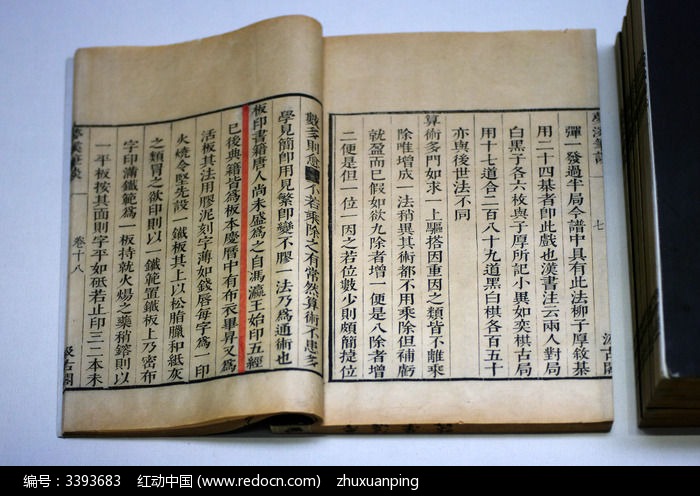 夢溪筆談
七
汲古閣
彈一發過半局今譜中具有此法柳子厚敘棊
用二十四棊者即此戲也漢書注云兩人對局
白黑子各六枚與子厚所記小異如奕棋古局
用十七道合二百八十九道黑白棋各百五十
亦與後世法不同
算術多門如求一上驅搭因重因之類皆不離乘
除唯增成一法稍異其術都不用乘除但補虧
就盈而已假如欲九除者增一便是八除者增
二便是但一位一因之若位數少則頗簡捷位
數多則愈 不若乘除之有常然算術不患多
學見簡即用見繁即變不膠一法乃為通術也
板印書籍唐人尚未盛為之自馮瀛王始印五經
已後典籍皆為板本慶曆中有布衣畢昇又為
活板其法用膠泥刻字薄如錢唇每字為一印
火燒令堅先設一鐵板其上以松脂臘和紙灰
之類冒之欲印則以一鐵範置鐵板上乃密布
字印滿鐵範為一板持就火煬之藥稍鎔則以
一平板按其面則字平如砥若止印三二本未
夢溪筆談
卷十八
汲古閣
编号：3393683 红动中国 (www.redocn.com) zhuxuanping